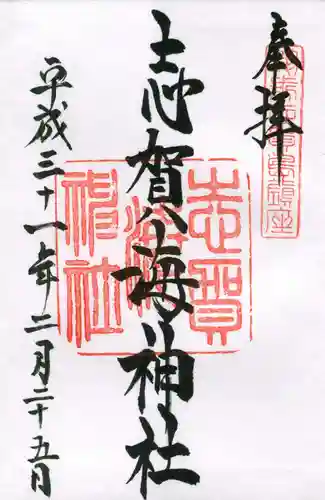 奉拝
志賀海神社
平成三十一年二月二十五日
志賀
海
神社